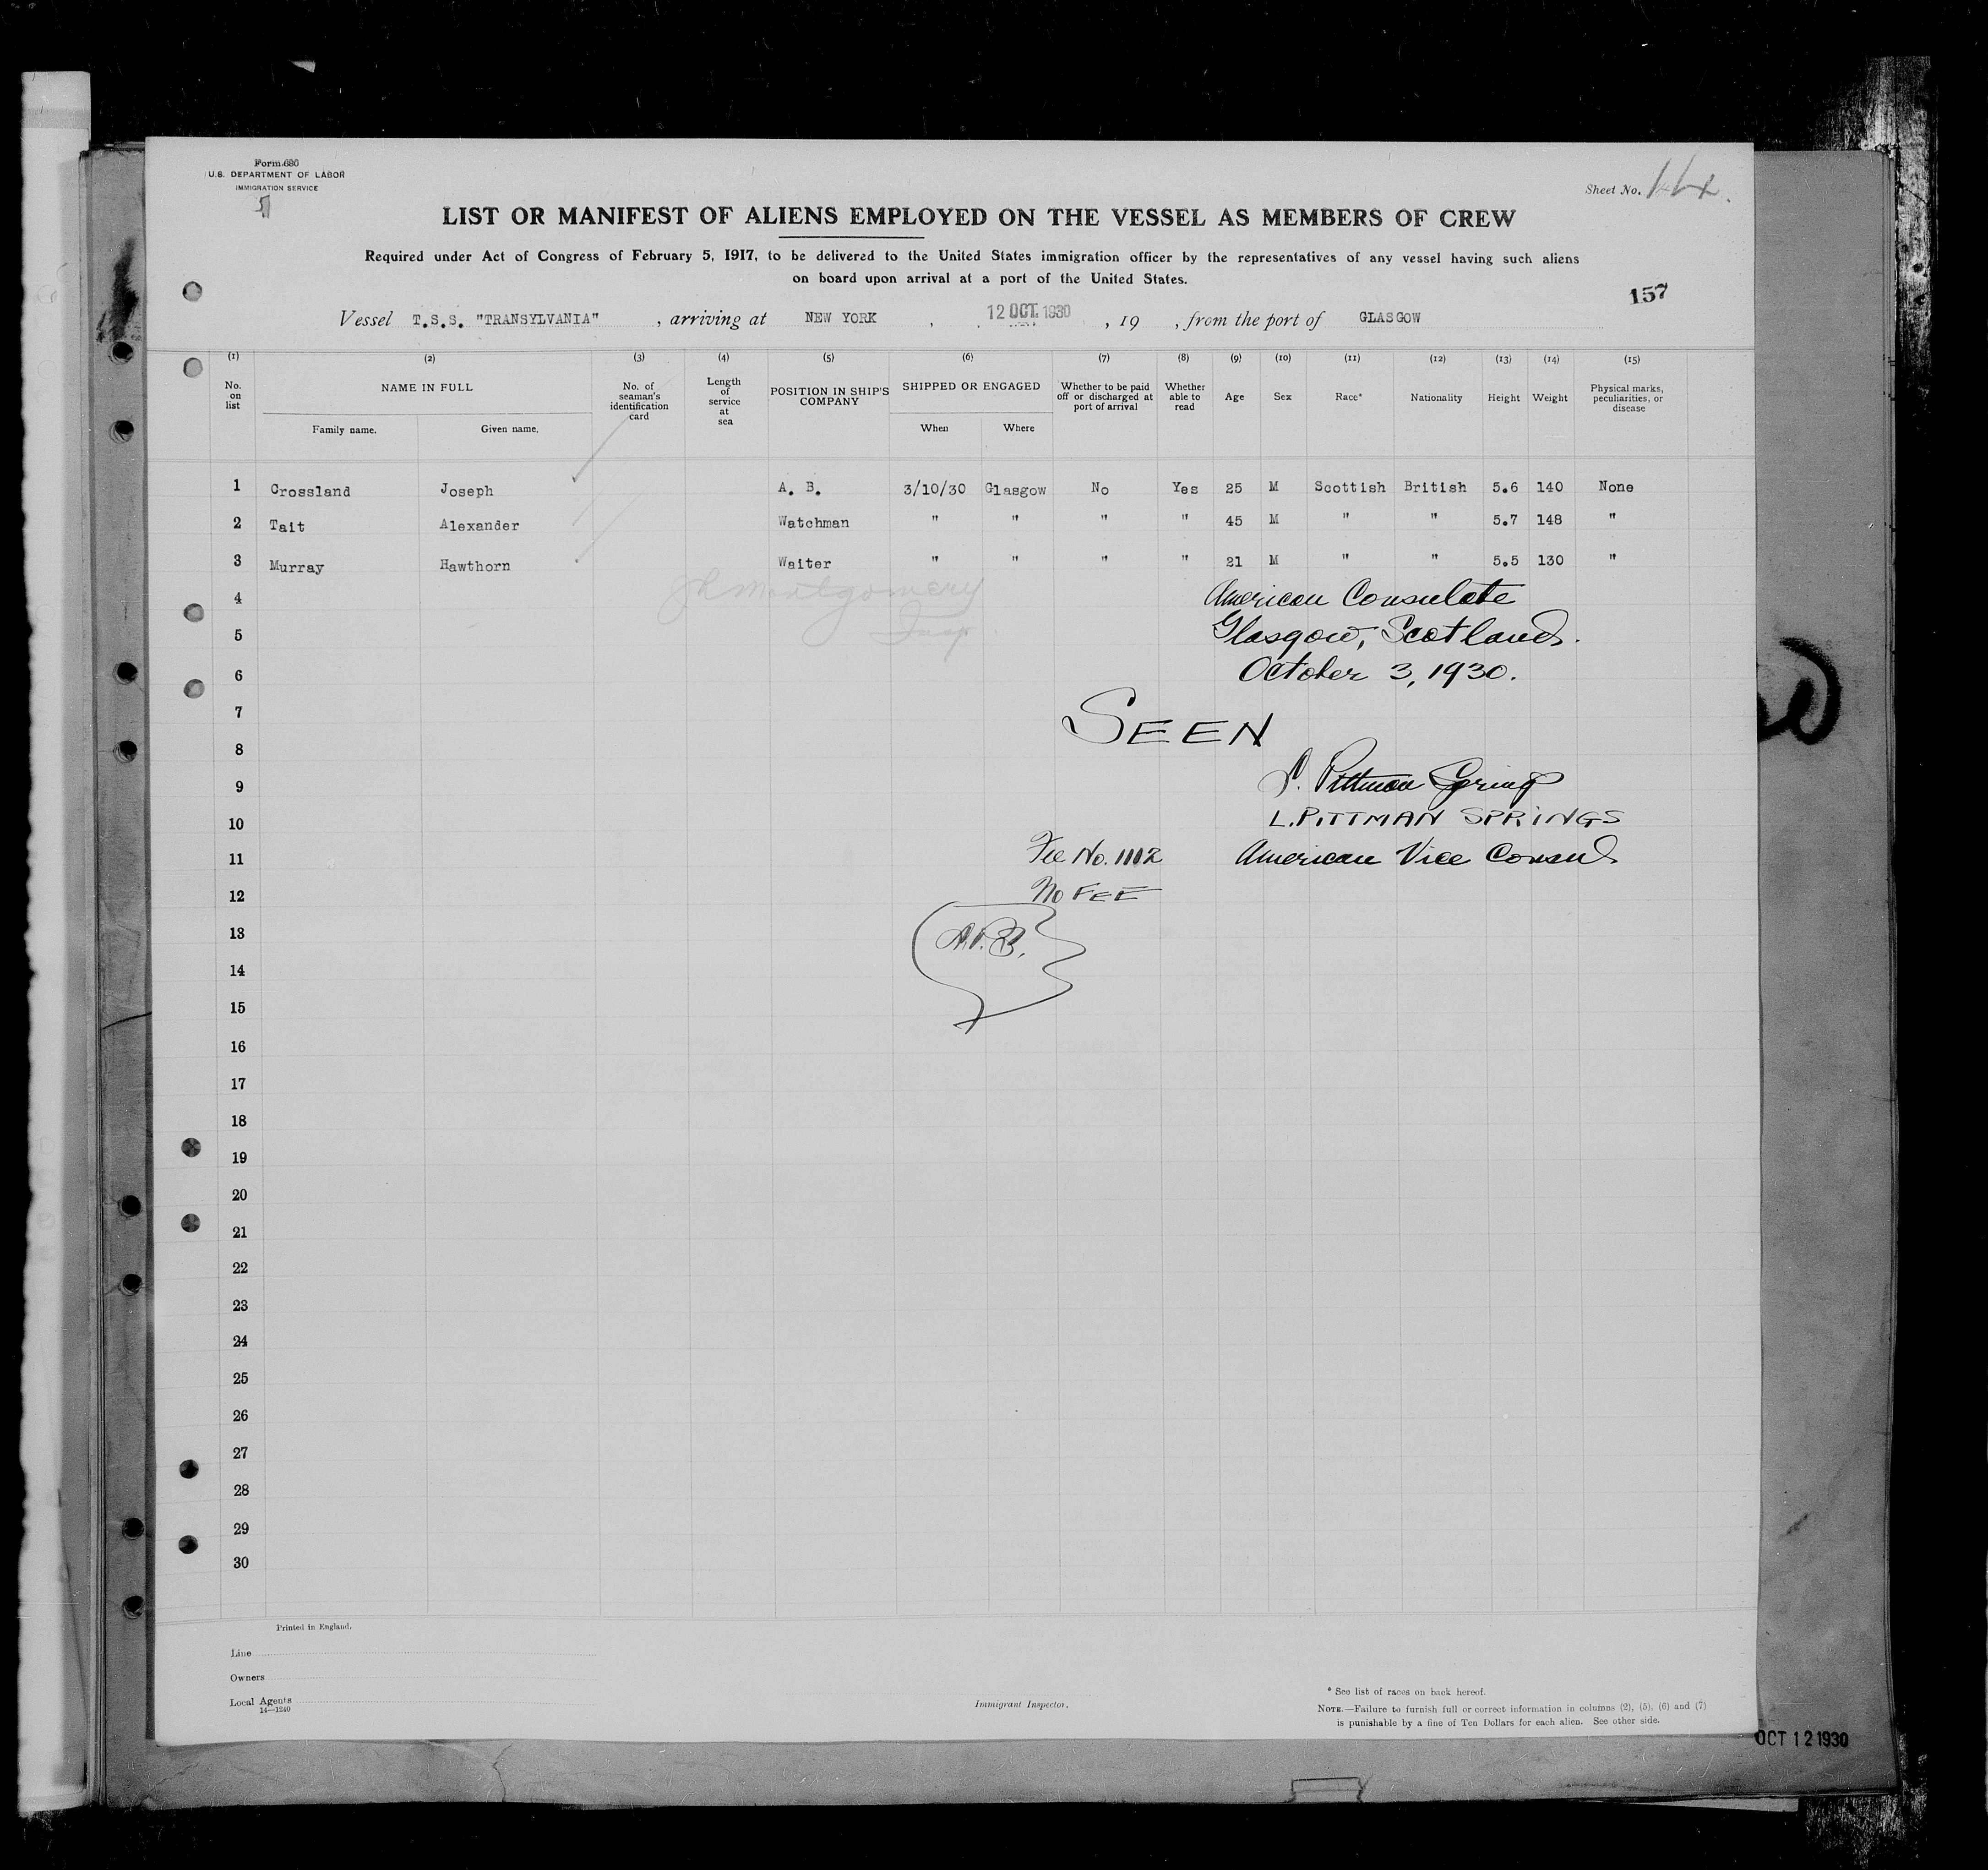 Form 680
U.S. DEPARTMENT OF LABOR
IMMIGRATION SERVICE
51
Sheet No. 14.
LIST OR MANIFEST OF ALIENS EMPLOYED ON THE VESSEL AS MEMBERS OF CREW
Required under Act of Congress of February 5, 1917, to be delivered to the United States immigration officer by the representatives of any vessel having such aliens
on board upon arrival at a port of the United States.
157
Vessel T.S.S. "TRANSYLVANIA" , arriving at NEW YORK , 12 OCT. 1930 , 19 , from the port of GLASGOW
(1) (2) (3) (4) (5) (6) (7) (8) (9) (10) (11) (12) (13) (14) (15)
No. on list NAME IN FULL No. of seaman's identification card Length of service at sea POSITION IN SHIP'S COMPANY SHIPPED OR ENGAGED Whether to be paid off or discharged at port of arrival Whether able to read Age Sex Race* Nationality Height Weight Physical marks, peculiarities, or disease
Family name. Given name. When Where
1 Crossland Joseph A. B. 3/10/30 Glasgow No Yes 25 M Scottish British 5.6 140 None
2 Tait Alexander Watchman " " " " 45 M " " 5.7 148 "
3 Murray Hawthorn Waiter " " " " 21 M " " 5.5 130 "
Montgomery
Insp.
4
American Consulate
5
Glasgow, Scotland.
6
October 3, 1930.
7
SEEN
8
9
L. Pittman Springs
10
L. PITTMAN SPRINGS
11
Fee No. 1112 American Vice Consul
12
No FEE
13
14
15
16
17
18
19
20
21
22
23
24
25
26
27
28
29
30
Printed in England.
Line
Owners
Local Agents
14—1240
Immigrant Inspector.
* See list of races on back hereof.
NOTE.—Failure to furnish full or correct information in columns (2), (5), (6) and (7)
is punishable by a fine of Ten Dollars for each alien. See other side.
OCT 12 1930